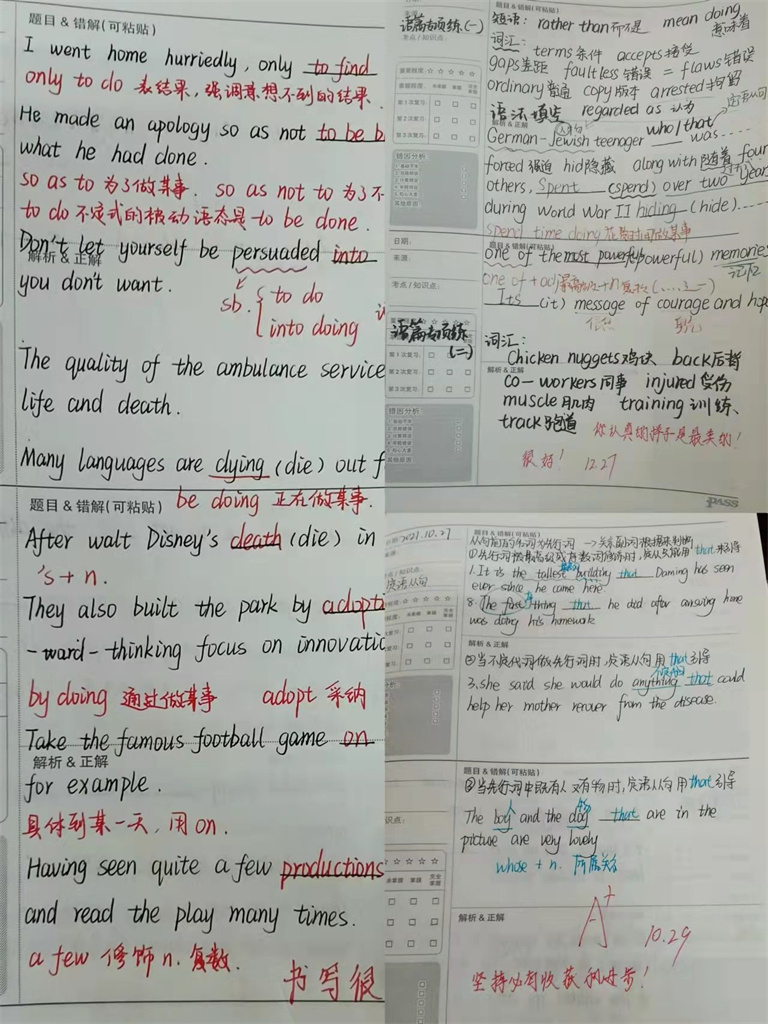 题目 & 错解(可粘贴)
I went home hurriedly, only to find
only to do 表结果,强调意想不到的结果.
He made an apology so as not to be b
what he had done.
so as to 为了做某事. so as not to 为了不
to do 不定式的被动语态是 to be done.
Don't let yourself be persuaded into
解析 & 正解
you don't want.
sb. to do
into doing
The quality of the ambulance service
life and death.
Many languages are dying (die) out f
题目 & 错解(可粘贴)
be doing 正在做某事.
After walt Disney's death (die) in
's + n.
They also built the park by adopti
-ward-thinking focus on innovatio
by doing 通过做某事 adopt 采纳
Take the famous football game on
解析 & 正解
for example.
具体到某一天,用on.
Having seen quite a few productions
and read the play many times.
a few 修饰 n. 复数.
书写很
语篇专项练(一)
考点/知识点:
第1次复习:
第2次复习:
第3次复习:
错因分析
日期:
来源:
考点/知识点:
语篇专项练(二)
第1次复习:
第2次复习:
第3次复习:
错因分析
题目 & 错解(可粘贴)
短语: rather than 而不是 mean doing 意味着
词汇: terms 条件 accepts 接受
gaps 差距 faultless 错误 = flaws 错误
ordinary 普通 copy 版本 arrested 拘留
语法填空 regarded as 认为
定语从句
解析 & 正解
German-Jewish teenager who/that was....
forced 强迫 hid 隐藏 along with 随着 four
others, spent (spend) over two years
during World War II hiding (hide)....
spend time doing 花费时间做某事
题目 & 错解(可粘贴)
one of the most powerful (powerful) memories
one of + adj最高级 + n复数 (....之一)
Its (it) message of courage and hope
词汇:
chicken nuggets 鸡块 back 后背
解析 & 正解
co-workers 同事 injured 受伤
muscle 肌肉 training 训练、
track 跑道 你认真的样子是最美的!
很好! 12.27
PASS
2021.10.27
定语从句
题目 & 错解(可粘贴)
①先行词被最高级或序数词修饰时,定从只能用that来引导
1. It is the tallest building that Daming has seen
ever since he came here.
8. The first thing that he did after arriving home
was doing his homework
解析 & 正解
②当不定代词做先行词时,定语从句用that引导
3. she said she would do anything that could
help her mother recover from the disease.
题目 & 错解(可粘贴)
③当先行词中既有人又有物时,定语从句用that引导
人
The boy and the dog that are in the
picture are very lovely
whose + n. 所属关系
A+
解析 & 正解
10.29
坚持必有收获和进步!